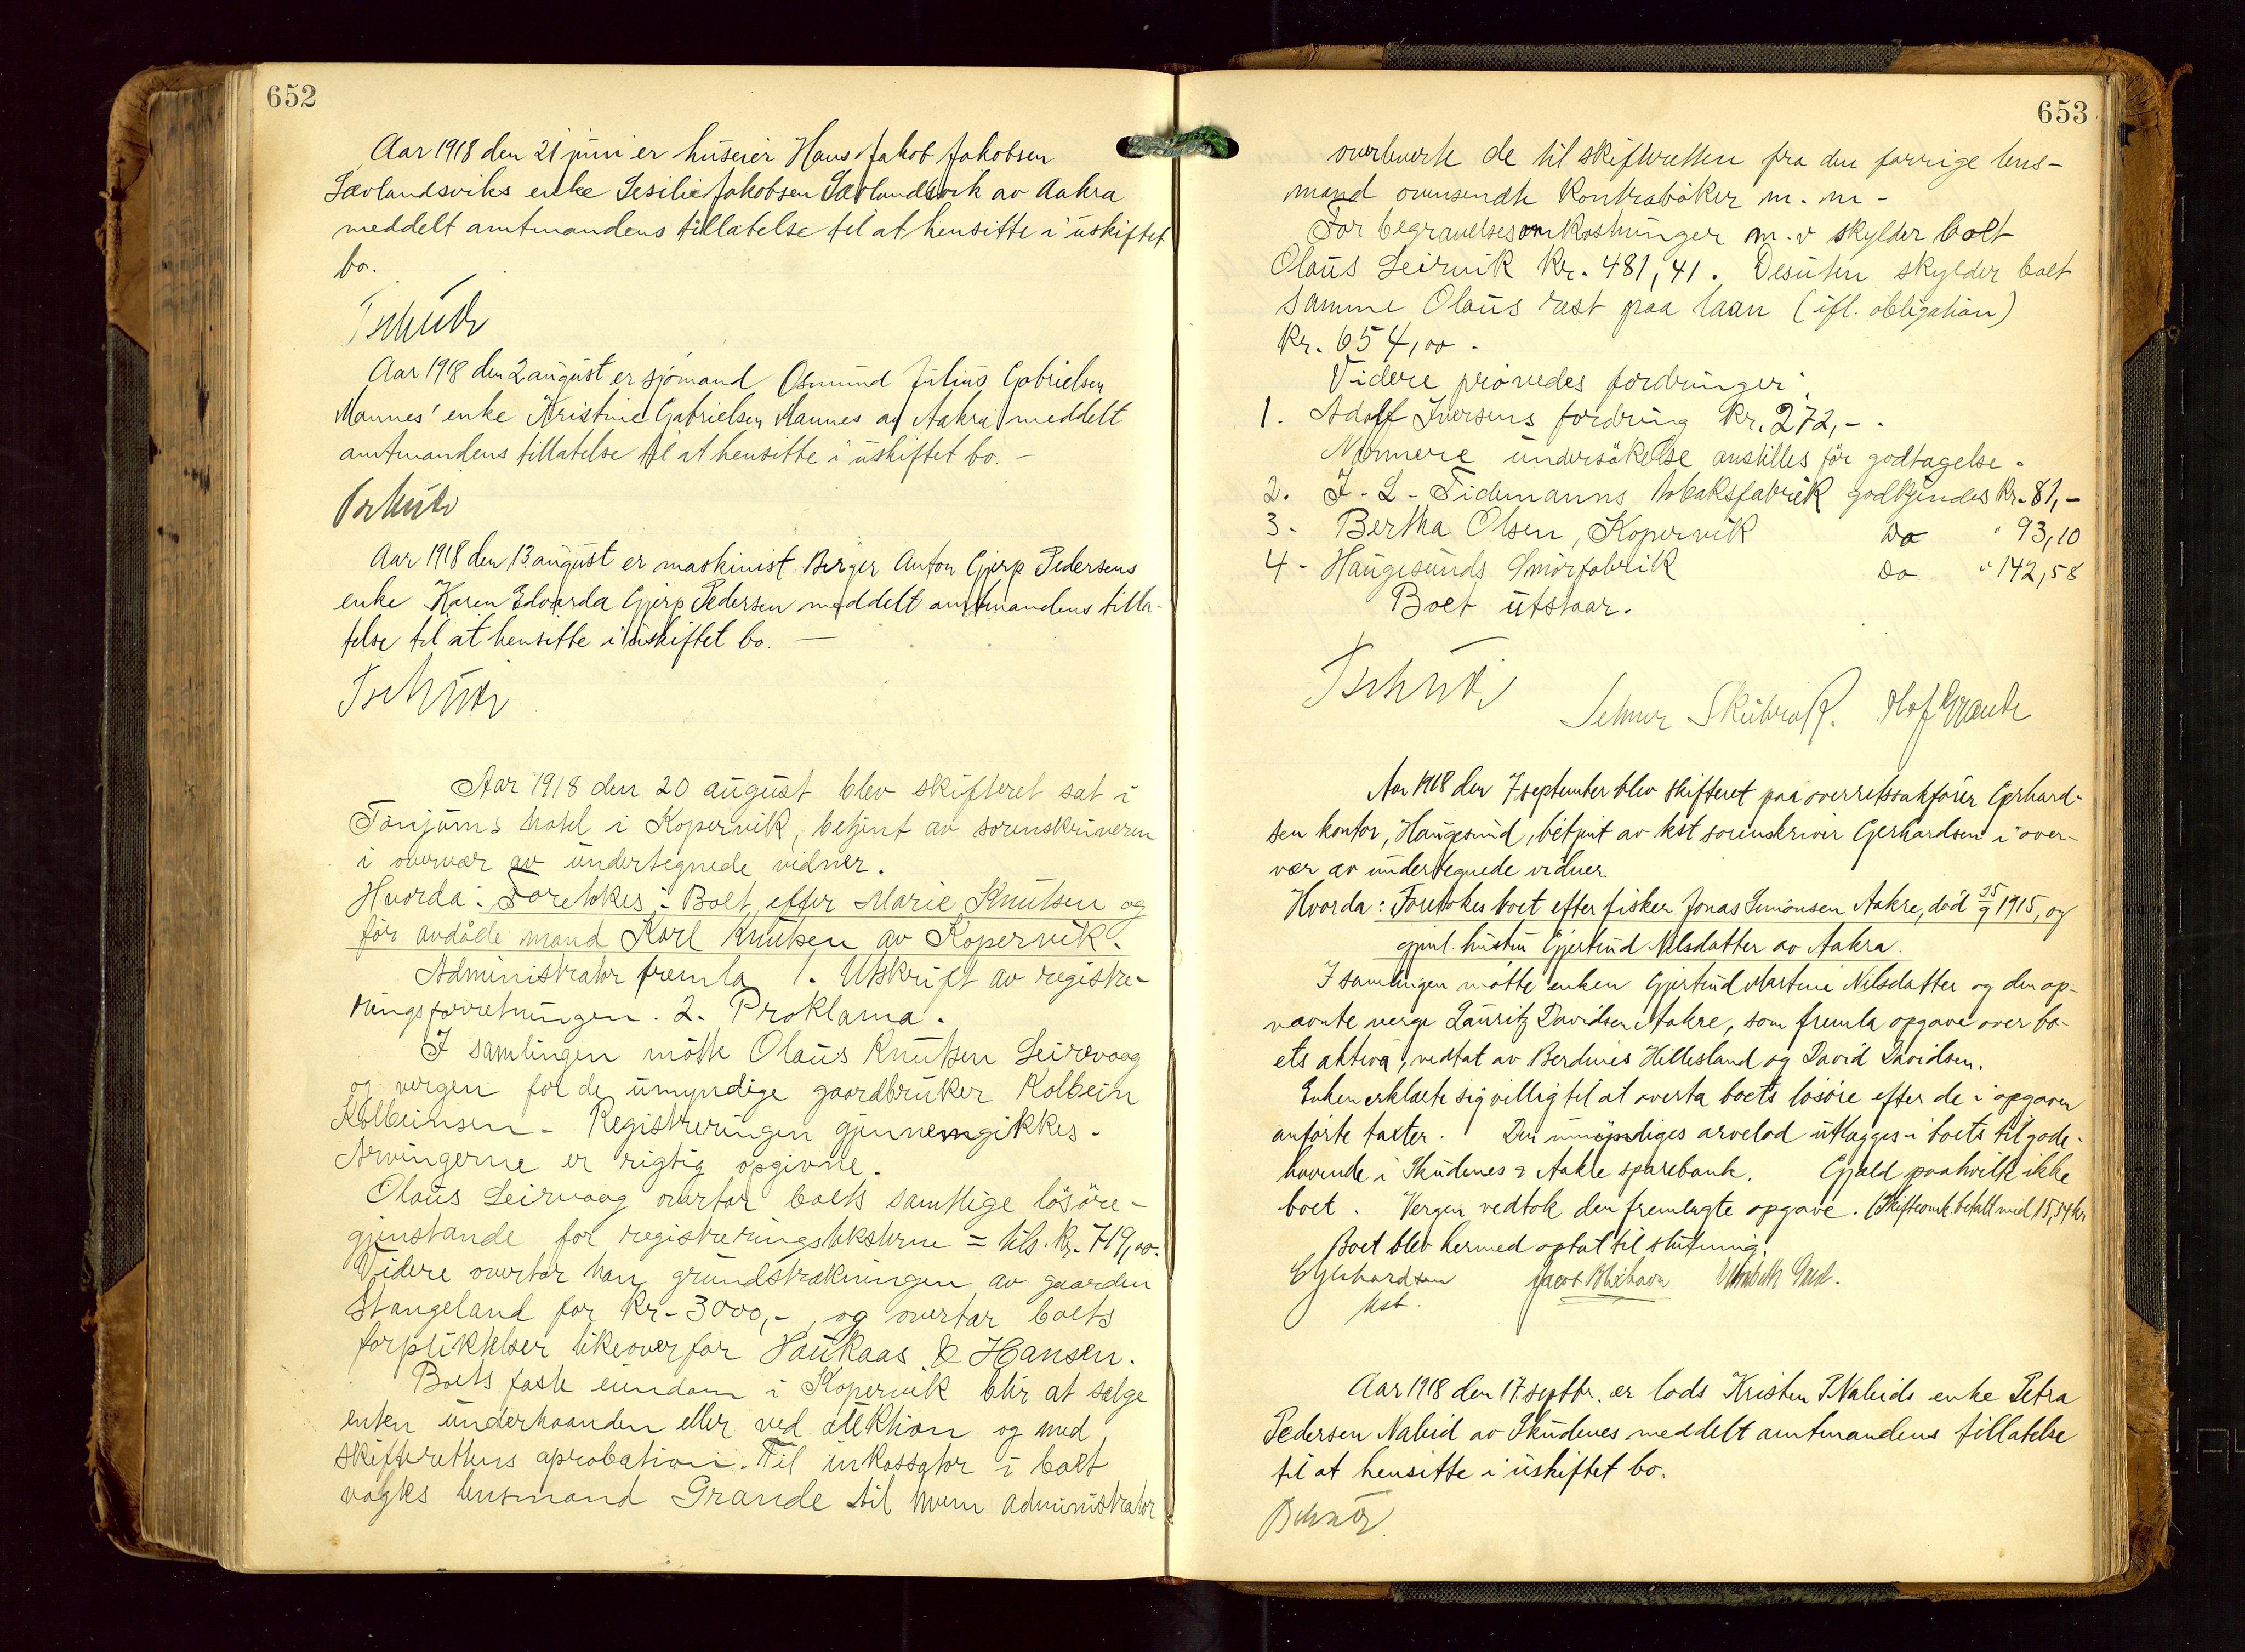 652
Aar 1918 den 21 juni er huseier Hans Jakob Jakobsen
Sævlandsviks enke Sesilie Jakobsen Sævlandsvik av Aakra
meddelt amtmandens tillatelse til at hensitte i uskiftet
bo.
Tschudi
Aar 1918 den 2 august er sjömand Osmund Julius Gabrielsen
Mannes' enke Kristine Gabrielsen Mannes av Aakra meddelt
amtmandens tillatelse til at hensitte i uskiftet bo. –
Tschudi
Aar 1918 den 13 august er maskinist Berger Anton Gjerp Pedersens
enke Karen Edvarda Gjerp Pedersen meddelt amtmandens tilla-
telse til at hensitte i uskiftet bo. —
Tschudi
Aar 1918 den 20 august blev skifteret sat i
Tönjums hotel i Kopervik, betjent av sorenskriveren
i overvær av undertegnede vidner.
Hvorda: Foretokes: Boet efter Marie Knutsen og
för avdöde mand Karl Knutsen av Kopervik.
Administrator fremla 1. Utskrift av registre-
ringsforretningen. 2. Proklama.
I samlingen mötte Olaus Knutsen Leirvaag
og vergen for de umyndige gaardbruker Kolbein
Kolbeinsen – Registreringen gjennemgikkes.
Arvingerne er rigtig opgivne.
Olaus Leirvaag overtar boets samtlige lösöre-
gjenstande for registreringstaksterne = tils. kr. 719,00.
Videre overtar han grundstrækningen av gaarden
Stangeland for kr – 3000,–, og overtar boets
forpliktelser likeoverfor Haukaas & Hansen.
Boets faste eiendom i Kopervik blir at sælge
enten underhaanden eller ved auktion og med
skifterettens aprobation. Til inkassator i boet
valgtes lensmand Grande til hvem administrator
653
overleverte de til skifteretten fra den forrige lens-
mand oversendte kontrabøker m. m –
For begravelsesomkostninger m. v skylder boet
Olaus Leirvik kr. 481,41. Desuten skylder boet
samme Olaus rest paa laan (ifl. obligation)
kr. 654,00.
Videre prövedes fordringer:
1. Adolf Iversens fordring kr. 272,–.
Nærmere undersökelse anstilles för godtagelse.
2. J. L. Tidemanns tobaksfabrik godkjendes kr. 81,–
3 – Bertha Olsen, Kopervik Do " 93,10
4 – Haugesunds Smörfabrik Do " 142,58
Boet utstaar.
Tschudi
Selmer Olaf Grande
Aar 1918 den 7 september blev skifteret paa overretssakförer Gerhard-
sen kontor, Haugesund, betjent av kst sorenskriver Gerhardsen i over-
vær av undertegnede vidner.
Hvorda: Foretokes boet efter fisker Jonas Simonsen Aakre, död 25/9 1915, og
gjenl. hustru Gjertrud Nilsdatter av Aakra.
I samlingen mötte enken Gjertrud Martine Nilsdatter og den op-
nævnte verge Lauritz Davidsen Aakre, som fremla opgave over bo-
ets aktiva, vedtat av Berdines Hillesland og David Davidsen.
Enken erklærte sig villig til at overta boets lösöre efter de i opgaven
anförte takster. Den umyndiges arvelod utlægges i boets tilgode-
havende i Skudenes & Aakre sparebank. Gjæld paahvilte ikke
boet. Vergen vedtok den fremlagte opgave. (Skifteomk. betalt med 15,54 kr
Boet blev hermed optat til slutning.
EGerhardsen
kst.
Aar 1918 den 17 septbr. er lods Kristen P. Naleids enke Petra
Pedersen Naleid av Skudenes meddelt amtmandens tillatelse
til at hensitte i uskiftet bo.
Tschudi